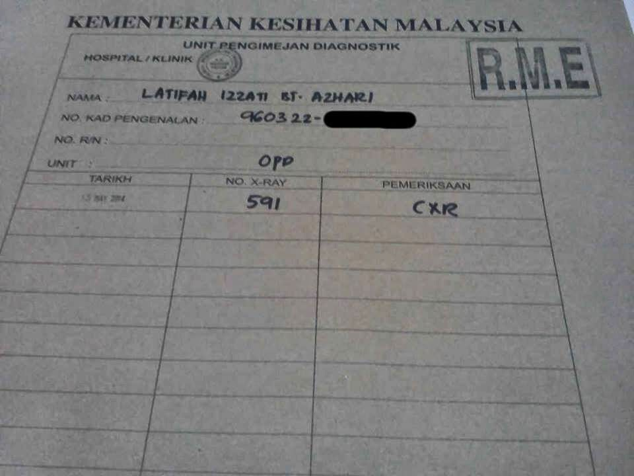 KEMENTERIAN KESIHATAN MALAYSIA
UNIT PENGIMEJAN DIAGNOSTIK
HOSPITAL / KLINIK
R.M.E
NAMA : LATIFAH IZZATI BT. AZHARI
NO. KAD PENGENALAN : 960322-
NO. R/N :
UNIT : OPD
TARIKH NO. X-RAY PEMERIKSAAN
591 CXR